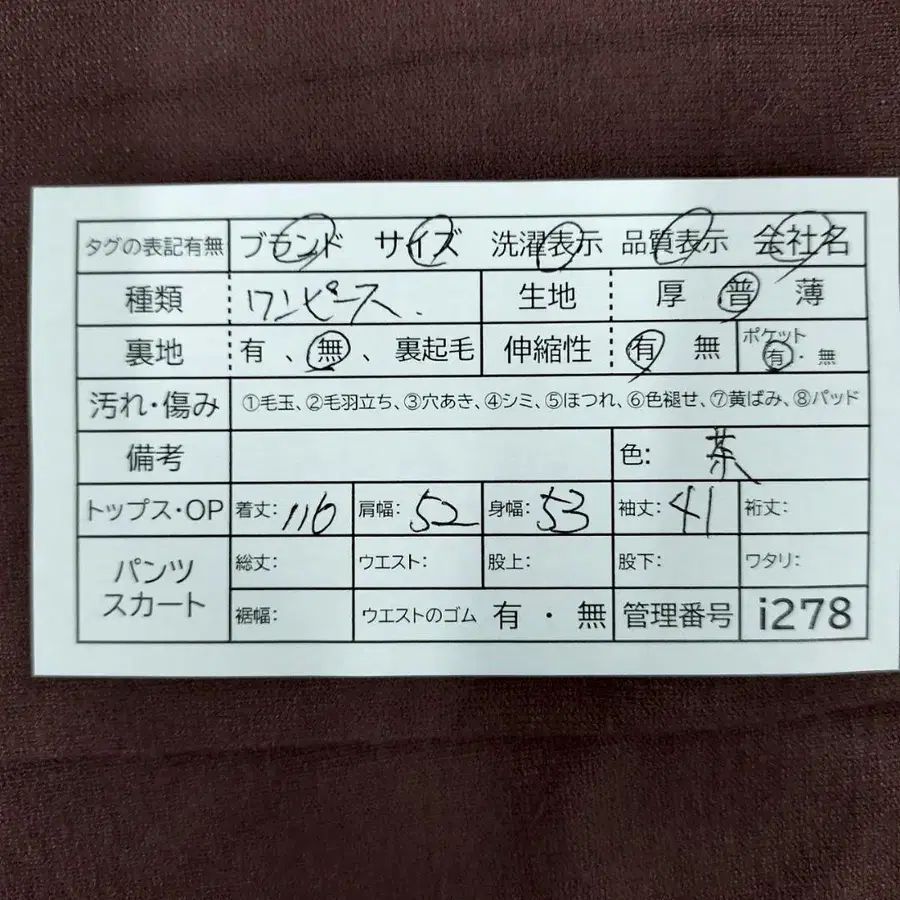 タグの表記有無 ブランド サイズ 洗濯表示 品質表示 会社名
種類 ワンピース. 生地 厚 普 薄
裏地 有 、 無 、 裏起毛 伸縮性 有 無 ポケット 有 ・ 無
汚れ・傷み ①毛玉、②毛羽立ち、③穴あき、④シミ、⑤ほつれ、⑥色褪せ、⑦黄ばみ、⑧パッド
備考 色: 茶
トップス・OP 着丈: 116 肩幅: 52 身幅: 53 袖丈: 41 裄丈:
パンツ スカート 総丈: ウエスト: 股上: 股下: ワタリ:
裾幅: ウエストのゴム 有 ・ 無 管理番号 i278